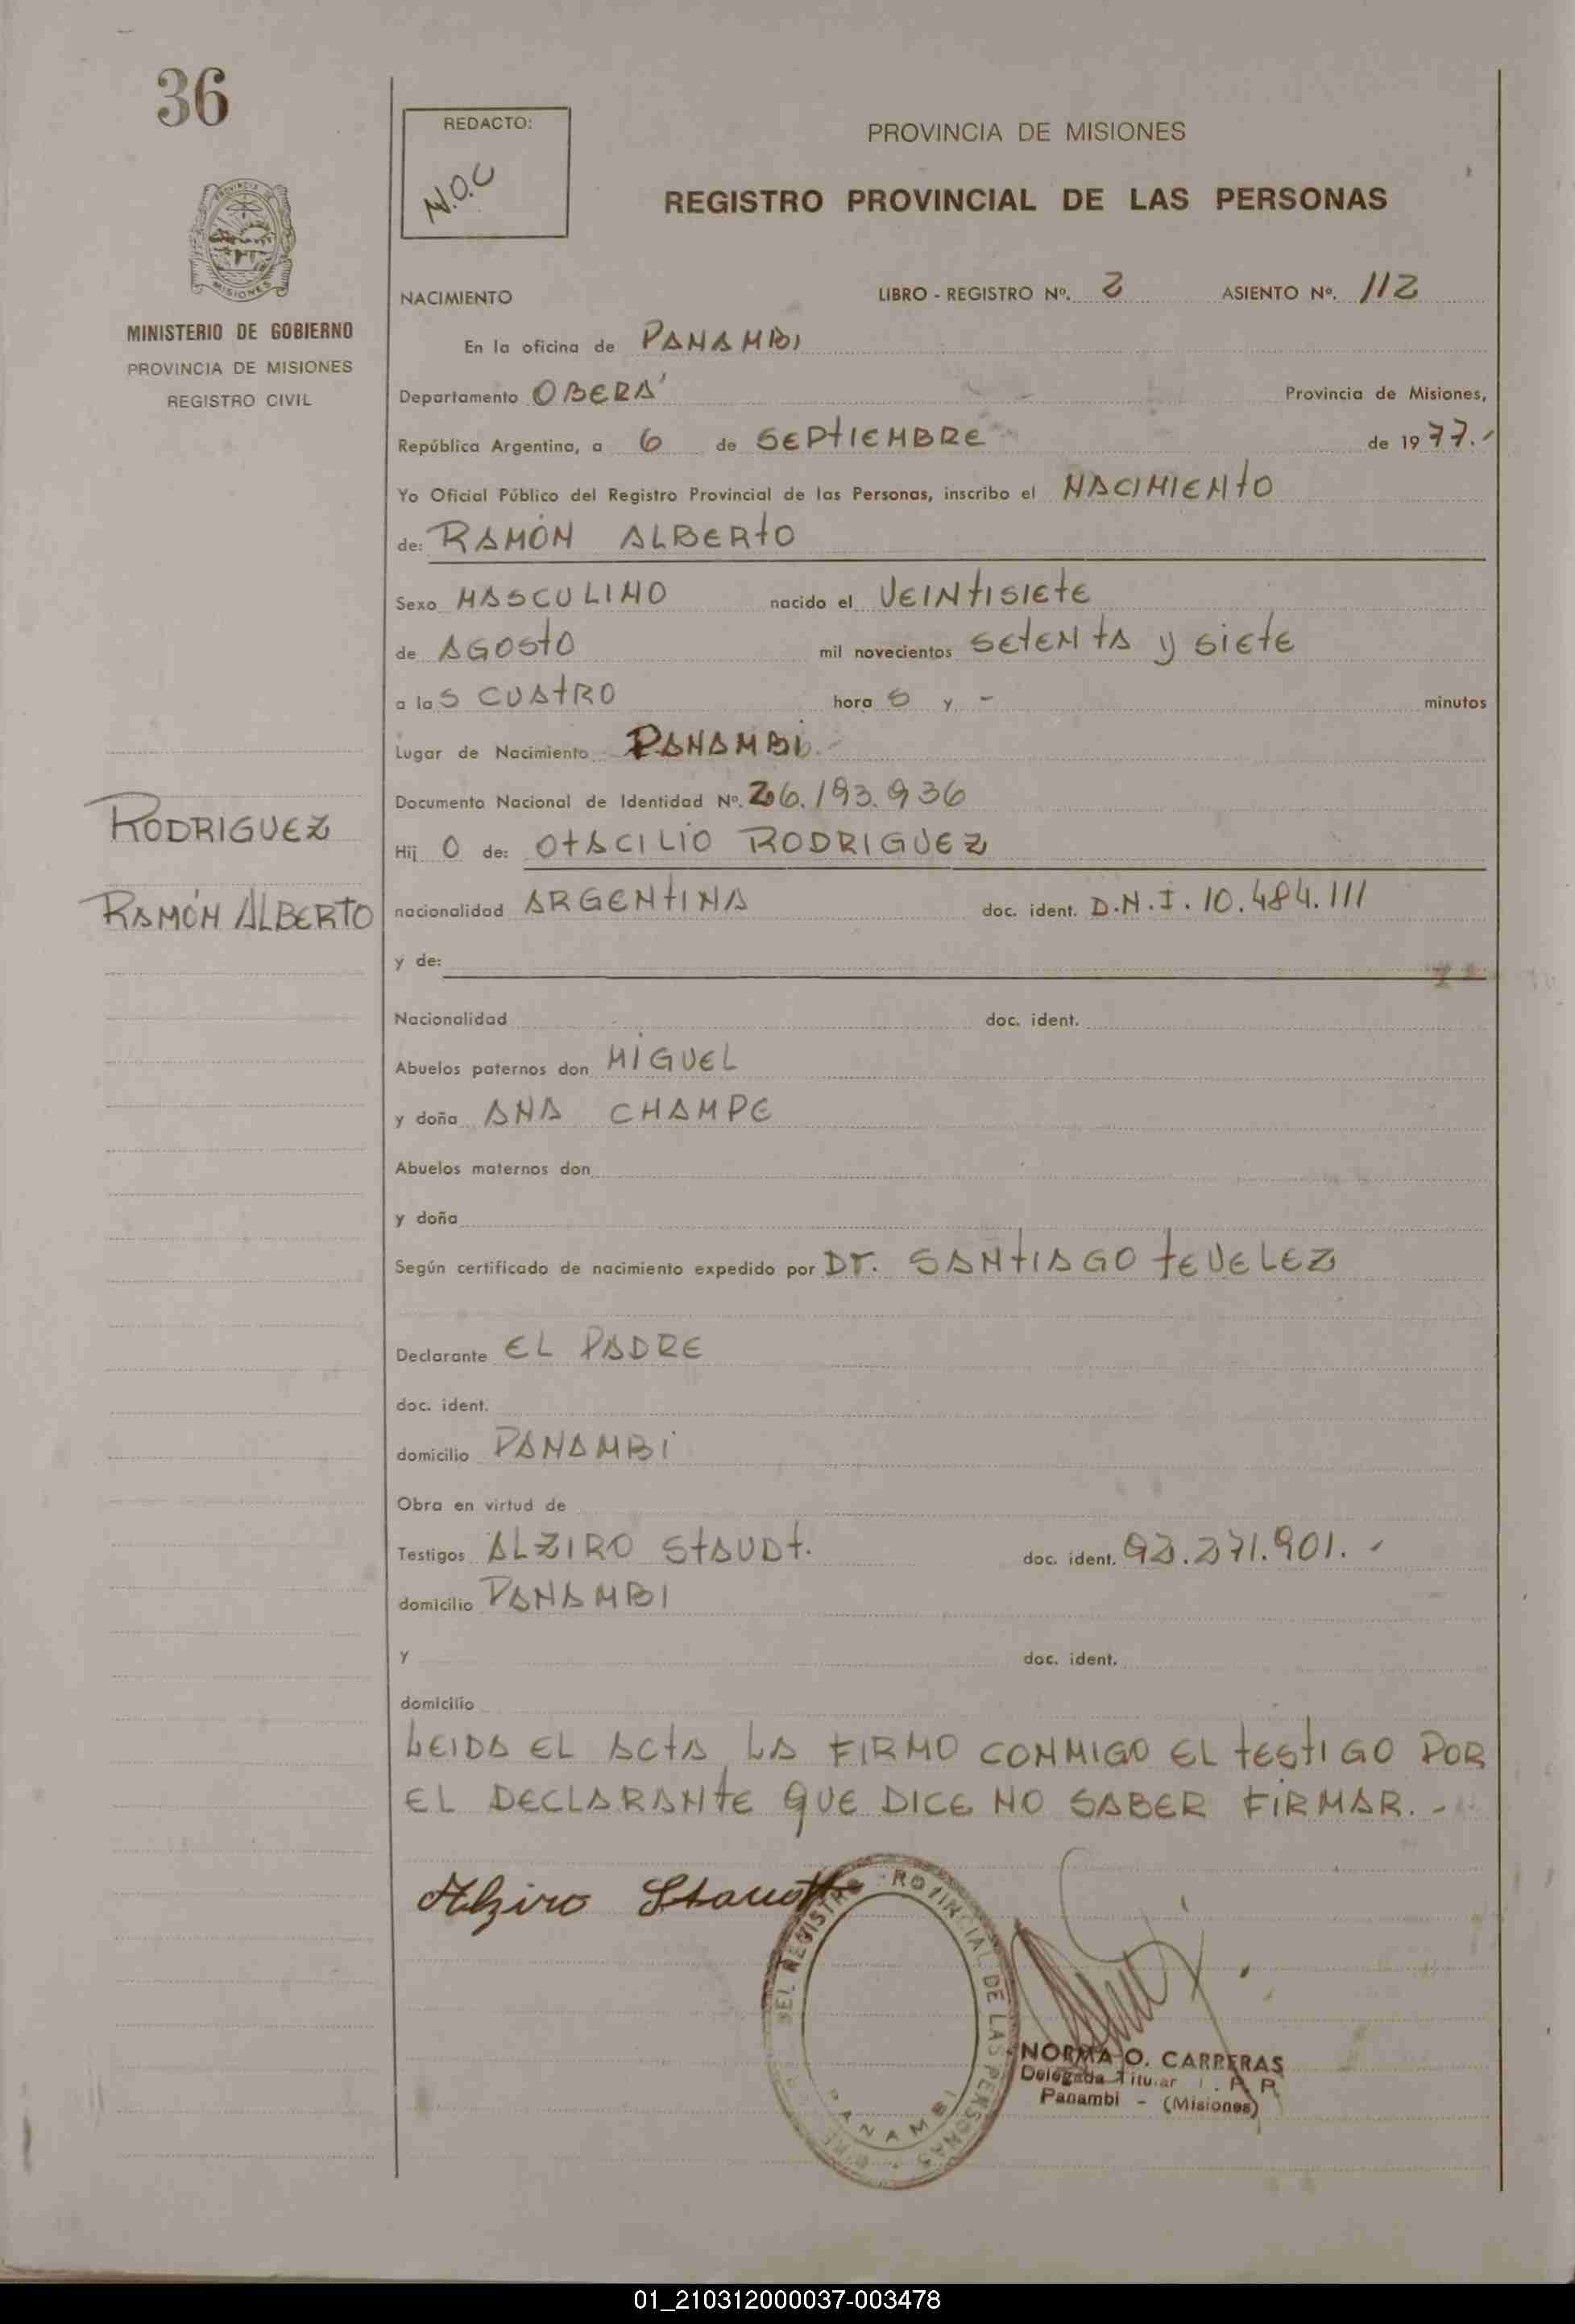 36
REDACTO:
N.O.C
PROVINCIA DE MISIONES
REGISTRO PROVINCIAL DE LAS PERSONAS
PROVINCIA DE
MISIONES
MINISTERIO DE GOBIERNO
PROVINCIA DE MISIONES
REGISTRO CIVIL
NACIMIENTO LIBRO - REGISTRO Nº. 2 ASIENTO Nº. 112
En la oficina de PANAMBI
Departamento OBERÁ Provincia de Misiones,
República Argentina, a 6 de SEPTIEMBRE de 1977.-
Yo Oficial Público del Registro Provincial de las Personas, inscribo el NACIMIENTO
de: RAMÓN ALBERTO
Sexo MASCULINO nacido el VEINTISIETE
de AGOSTO mil novecientos SETENTA y SIETE
a las CUATRO horas y - minutos
Lugar de Nacimiento PANAMBI.-
Documento Nacional de Identidad Nº. 26.193.936
RODRIGUEZ
Hijo de: OTACILIO RODRIGUEZ
RAMÓN ALBERTO
nacionalidad ARGENTINA doc. ident. D.N.I. 10.484.111
y de:
Nacionalidad doc. ident.
Abuelos paternos don MIGUEL
y doña ANA CHAMPE
Abuelos maternos don
y doña
Según certificado de nacimiento expedido por Dr. SANTIAGO TEVELEZ
Declarante EL PADRE
doc. ident.
domicilio PANAMBI
Obra en virtud de
Testigos ALZIRO STAUDT. doc. ident. 92.271.901.-
domicilio PANAMBI
y doc. ident.
domicilio
LEIDA EL ACTA LA FIRMO CONMIGO EL TESTIGO POR
EL DECLARANTE QUE DICE NO SABER FIRMAR.-
Alziro Staudt
DEL REGISTRO PROVINCIAL DE LAS PERSONAS
PANAMBI
NORMA O. CARRERAS
Delegada Titular R. P. P.
Panambi - (Misiones)
01_210312000037-003478